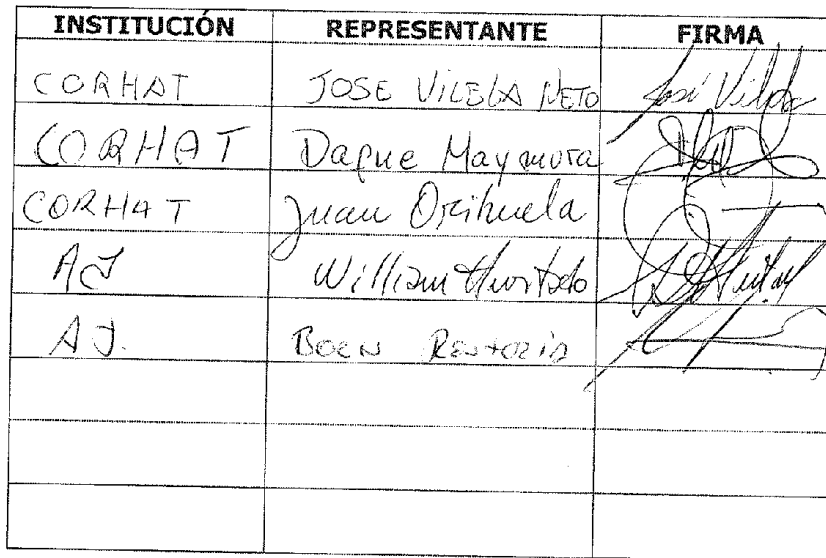 INSTITUCIÓN REPRESENTANTE FIRMA
CORHAT JOSE VILELA NETO José Vilela
CORHAT Dafne Maymura
CORHAT Juan Orihuela
AJ William Hurtado
AJ.